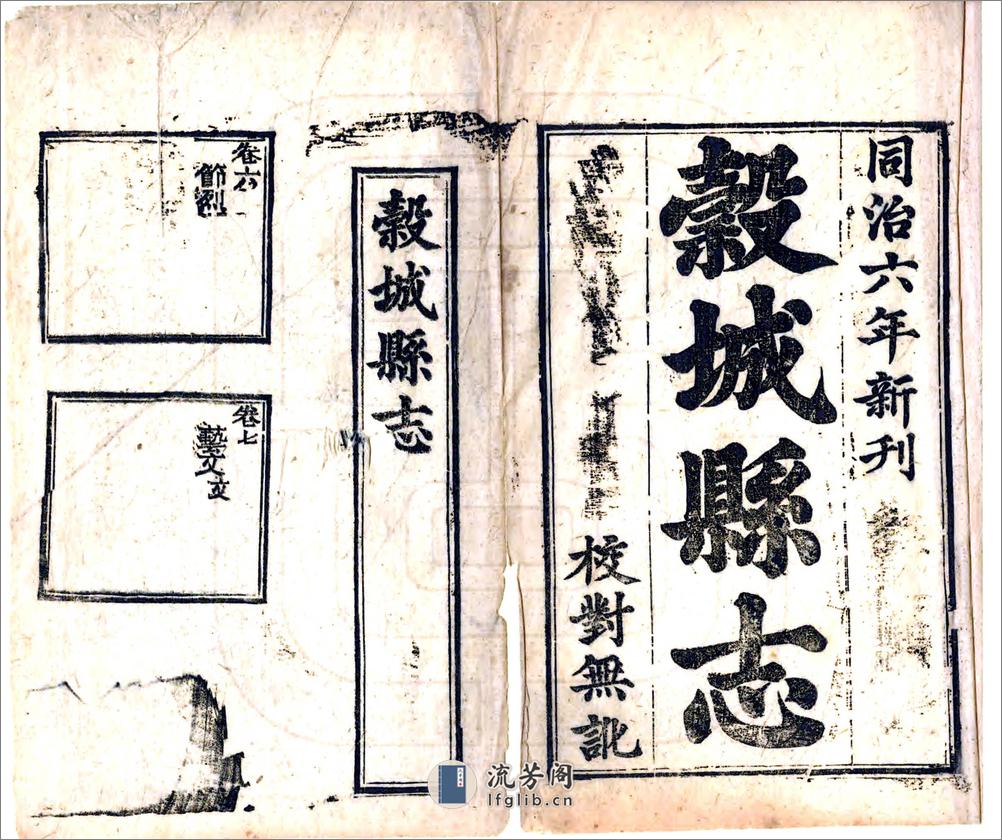 同治六年新刊
穀城縣志
校對無訛
穀城縣志
卷六
節烈
卷七
藝文
流芳阁
lfglib.cn